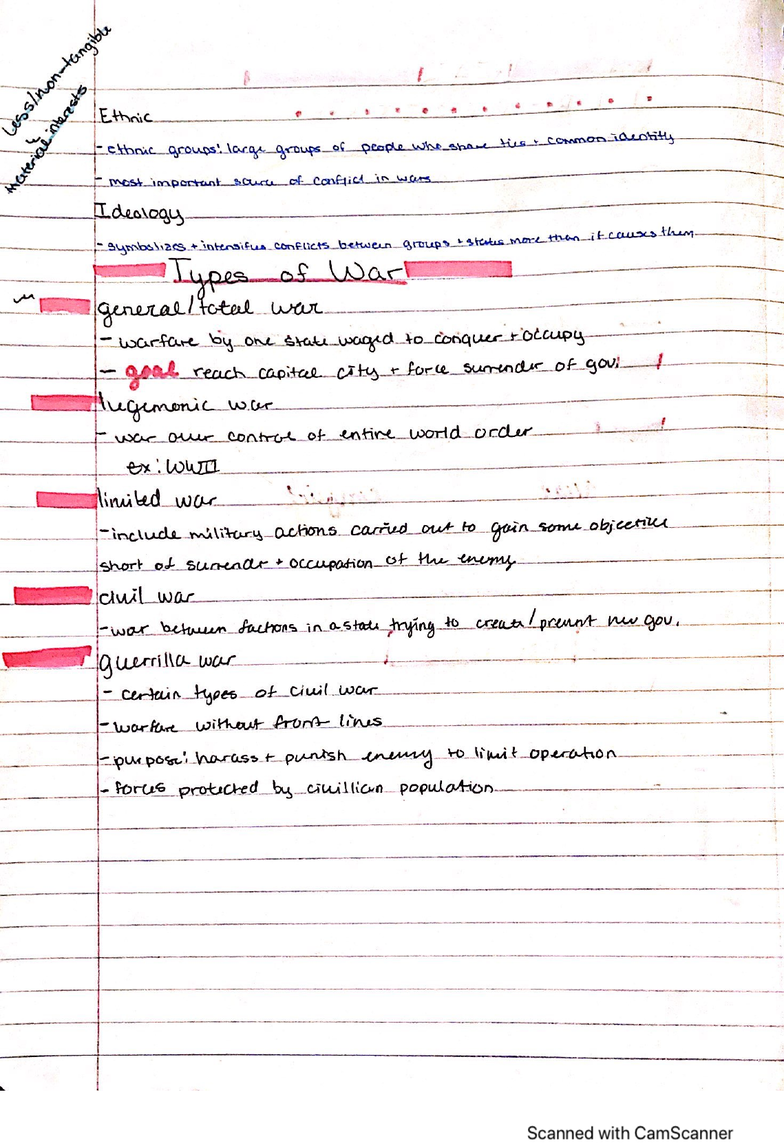 Less/non-tangible
material interests
Ethnic
- ethnic groups: large groups of people who share ties + common identity
- most important source of conflict in wars
Ideology
- symbolizes + intensifies conflicts between groups + states more than it causes them
Types of War
general/total war
- warfare by one state waged to conquer + occupy
- goal reach capital city + force surrender of gov.
hegemonic war
- war over control of entire world order
ex: WWII
limited war
- include military actions carried out to gain some objective
short of surrender + occupation of the enemy
civil war
- war between factions in a state trying to create/prevent new gov.
guerrilla war
- certain types of civil war
- warfare without front lines
- purpose: harass + punish enemy to limit operation
- forces protected by civillian population
Scanned with CamScanner